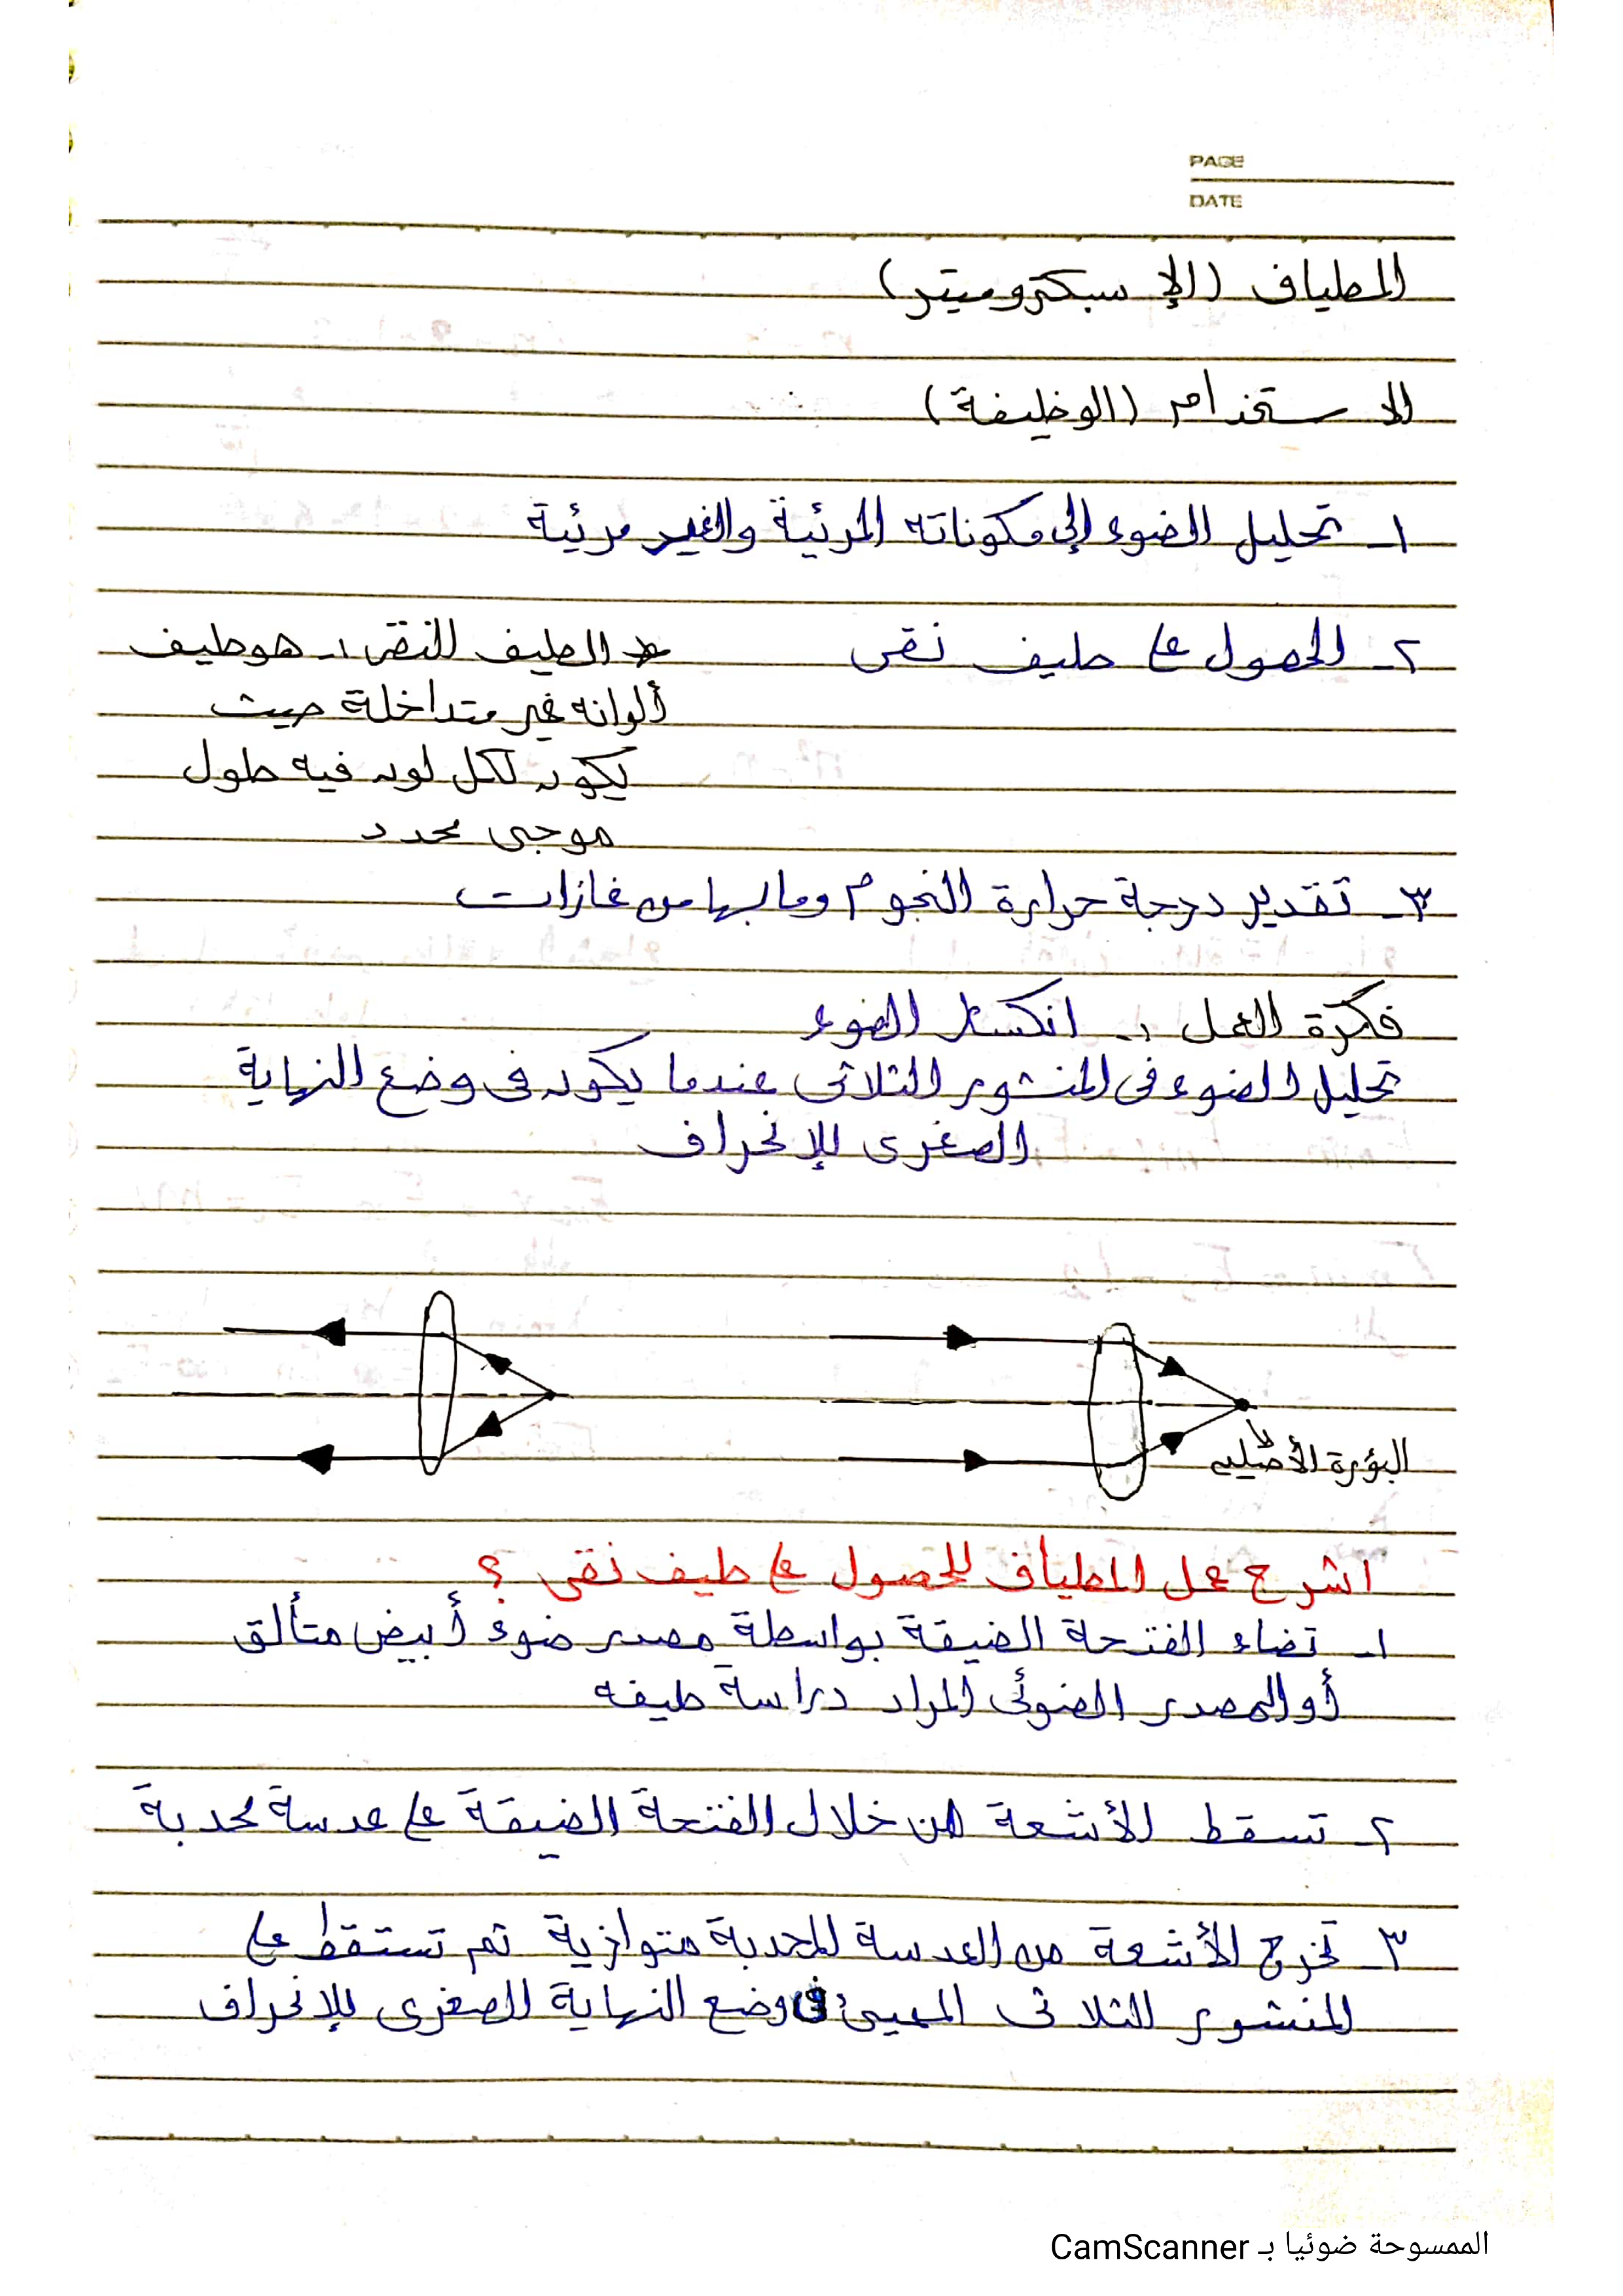 PAGE
DATE
المطياف (الإسبكتروميتر)
الاستخدام (الوظيفة)
١ـ تحليل الضوء إلى مكوناته المرئية والغير مرئية
٢ـ الحصول على طيف نقى
* الطيف النقى :ـ هو طيف
ألوانه غير متداخلة حيث
يكون لكل لون فيه طول
موجى محدد
٣ـ تقدير درجة حرارة النجوم وما بها من غازات
فكرة العمل :ـ انكسار الضوء
تحليل الضوء فى المنشور الثلاثى عندما يكون فى وضع النهاية
الصغرى للإنحراف
البؤرة الأصلية
اشرح عمل المطياف للحصول على طيف نقى ؟
١ـ تضاء الفتحة الضيقة بواسطة مصدر ضوء أبيض متألق
أو المصدر الضوئى المراد دراسة طيفه
٢ـ تسقط الأشعة من خلال الفتحة الضيقة على عدسة محدبة
٣ـ تخرج الأشعة من العدسة المحدبة متوازية ثم تستقط على
المنشور الثلاثى المهيئ فى وضع النهاية الصغرى للإنحراف
الممسوحة ضوئيا بـ CamScanner